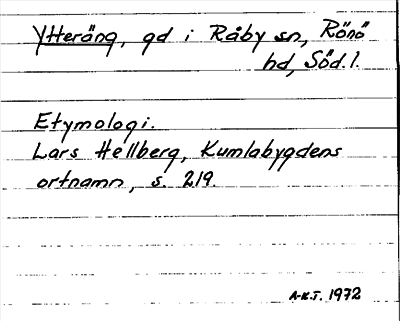 Ytteräng, gd i Råby sn, Rönö
hd, Söd. l.
Etymologi.
Lars Hellberg, Kumlabygdens
ortnamn, s. 219.
A-K.J. 1972